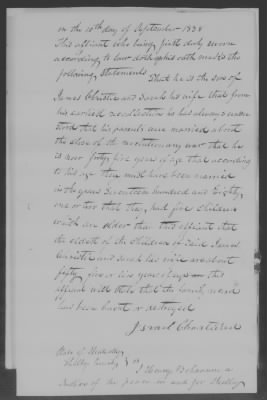 on the 10th day of September 1838
This affiant who being first duly sworn
according to law doth upon his oath make the
following statement That he is the son of
James Christie and Sarah his wife that from
his earliest recollection he has always under
stood that his parents were married about
the close of the revolutionary war that he
is now forty five years of age that according
to his age they must have been married
in the year Seventeen hundred and Eighty
one or two that they had five children
which are older than this affiant that
the eldest of the children of said James
Christie and Sarah his wife are about
fifty five or six years of age this
affiant will that the family record
has been burnt or destroyed
Israel Christie
State of Kentucky
Shelby County
I Henry Bohannon a
Justice of the peace in and for Shelby